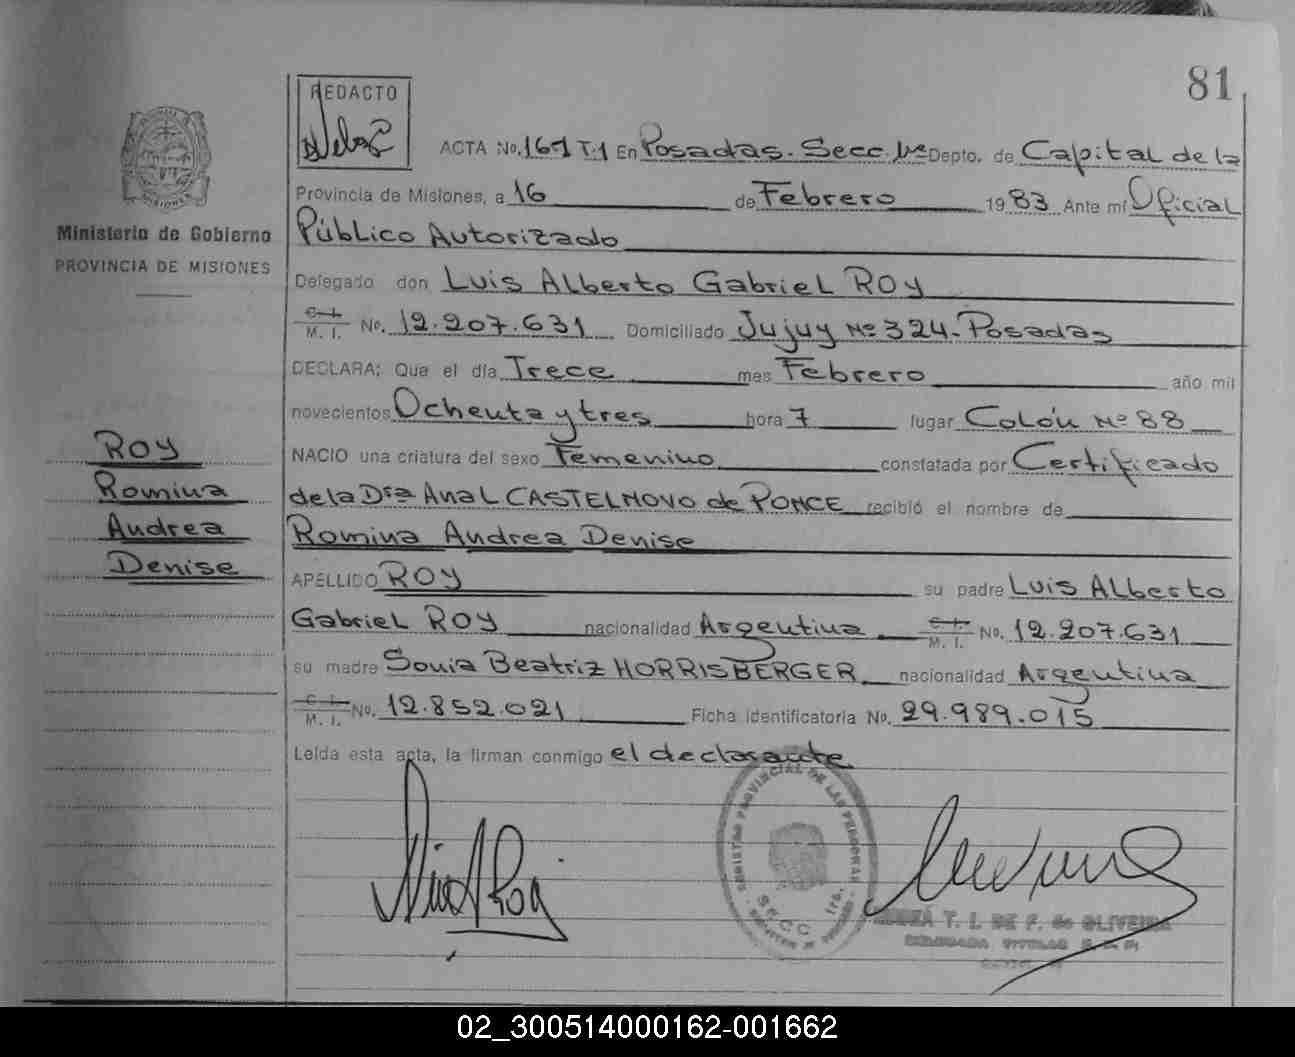 81
REDACTO
ACTA No. 161 T.1 En Posadas. Secc. 1ra Depto. de Capital de la
Provincia de Misiones, a 16 de Febrero 1983. Ante mí Oficial
Ministerio de Gobierno
Público Autorizado
PROVINCIA DE MISIONES
Delegado don Luis Alberto Gabriel ROY
C. I.
M. I. No. 12.207.631 Domiciliado Jujuy Nº 324-Posadas
DECLARA; Que el día Trece mes Febrero año mil
novecientos Ochenta y tres hora 7 lugar Colón Nº 88
ROY
NACIO una criatura del sexo Femenino constatada por Certificado
Romina
de la Dra Ana L CASTELNOVO de PONCE recibió el nombre de
Andrea
Romina Andrea Denise
Denise
APELLIDO ROY su padre Luis Alberto
Gabriel ROY nacionalidad Argentina C. I.
M. I. No. 12.207.631
su madre Sonia Beatriz HORRISBERGER nacionalidad Argentina
C. I.
M. I. No. 12.852.021 Ficha identificatoria No. 29.989.015
Leída esta acta, la firman conmigo el declarante
REGISTRO PROVINCIAL DE LAS PERSONAS
SECC 1ra.
T. I. DE F. de OLIVEIRA
DELEGADA TITULAR
02_300514000162-001662